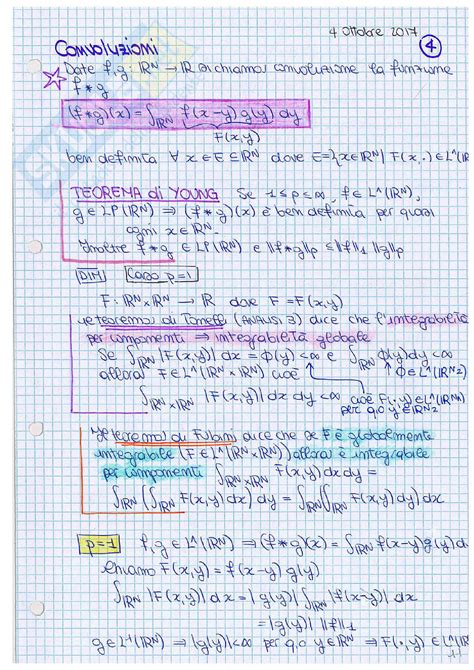 4 Ottobre 2017
4
Convoluzioni
Date f, g: ℝᴺ → ℝ si chiama convoluzione la funzione
f * g
(f*g)(x) = ∫ℝᴺ f(x-y) g(y) dy
F(x,y)
ben definita ∀ x ∈ E ⊆ ℝᴺ dove E = {x∈ℝᴺ | F(x,·) ∈ L¹(ℝ
TEOREMA di YOUNG Se 1 ≤ p ≤ ∞, f ∈ L¹(ℝᴺ),
g ∈ Lᵖ(ℝᴺ) ⇒ (f*g)(x) è ben definita per quasi
ogni x ∈ ℝᴺ.
Inoltre f*g ∈ Lᵖ(ℝᴺ) e ‖f*g‖p ≤ ‖f‖₁ ‖g‖p
DIM Caso p=1
F: ℝᴺ×ℝᴺ → ℝ dove F = F(x,y)
Il teorema di Tonelli (ANALISI 3) dice che l'integrabilità
per componenti ⇒ integrabilità globale
Se ∫ℝᴺ |F(x,y)| dx = Φ(y) < ∞ e ∫ℝᴺ Φ(y) dy < ∞
allora F ∈ L¹(ℝᴺ×ℝᴺ) cioè Φ ∈ L¹(ℝᴺ²)
∫ℝᴺ×ℝᴺ |F(x,y)| dx dy < ∞ cioè F(·,y) ∈ L¹(ℝᴺ¹)
per q.o y∈ℝᴺ²
Il teorema di Fubini dice che se F è globalmente
integrabile (F ∈ L¹(ℝᴺ×ℝᴺ)) allora è integrabile
per componenti ∫ℝᴺ×ℝᴺ F(x,y) dx dy =
∫ℝᴺ (∫ℝᴺ F(x,y) dx) dy = ∫ℝᴺ ∫ℝᴺ F(x,y) dy) dx
p=1 f, g ∈ L¹(ℝᴺ) ⇒ (f*g)(x) = ∫ℝᴺ f(x-y) g(y) d
Chiamo F(x,y) = f(x-y) g(y)
∫ℝᴺ |F(x,y)| dx = |g(y)| ∫ℝᴺ |f(x-y)| dx
= |g(y)| ‖f‖₁
g ∈ L¹(ℝᴺ) ⇒ |g(y)| < ∞ per q.o y ∈ ℝᴺ ⇒ F(·,y) ∈ L¹(ℝ